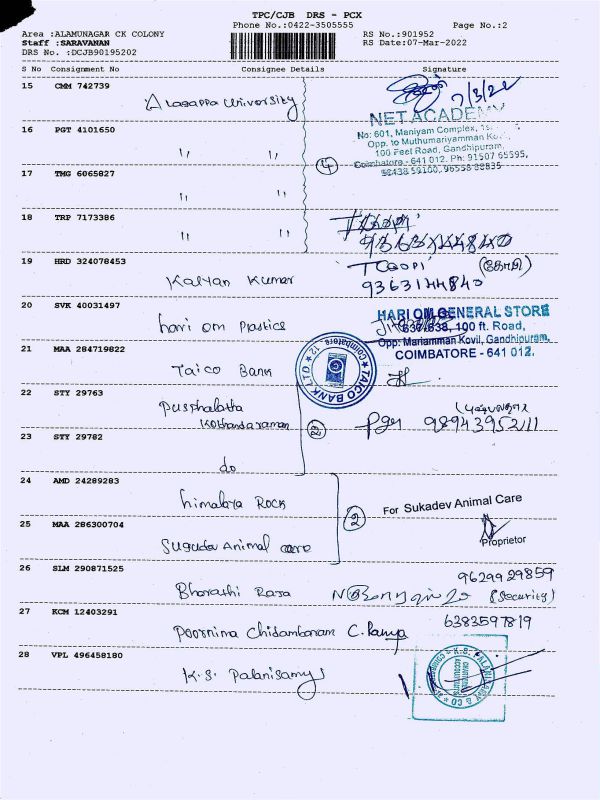 TPC/CJB DRS - PCX
Phone No.:0422-3505555 Page No.:2
Area :ALAMUNAGAR CK COLONY RS No.:901952
Staff :SARAVANAN RS Date:07-Mar-2022
DRS No. :DCJB90195202
S No Consignment No Consignee Details Signature
15 CMM 742739
Alagappa University 7/3/22
NET ACADEMY
16 PGT 4101650
No: 601, Maniyam Complex,
Opp. to Muthumariyamman
100 Feet Road, Gandhipuram,
Coimbatore - 641 012. Ph: 91507 65595,
98438 59100, 96558 88835
,, ,, 4
17 TMG 6065827
,, ,,
18 TRP 7173386
,, ,,
19 HRD 324078453
Kalyan Kumar TGopi (கோபி)
9363144840
20 SVK 40031497
hari om Plastics
HARI OM GENERAL STORE
636/638, 100 ft. Road,
Opp: Mariamman Kovil, Gandhipuram,
COIMBATORE - 641 012.
21 MAA 284719822
Taico Bank
TAICO BANK LTD Coimbatore - 12
22 STY 29763
Pusphalatha
Kothandaraman 2 9894395211
23 STY 29782
do
24 AMD 24289283
himalaya Rock
For Sukadev Animal Care
2
25 MAA 286300704
Sugudev Animal care
Proprietor
26 SLM 290871525
9629929859
Bharathi Raja (Security)
27 KCM 12403291
6383597819
Poornima Chidambaram C. Ramya
28 VPL 496458180
K.S. Palanisamy
K.S. PALANISAMY & CO
CHARTERED
ACCOUNTANTS